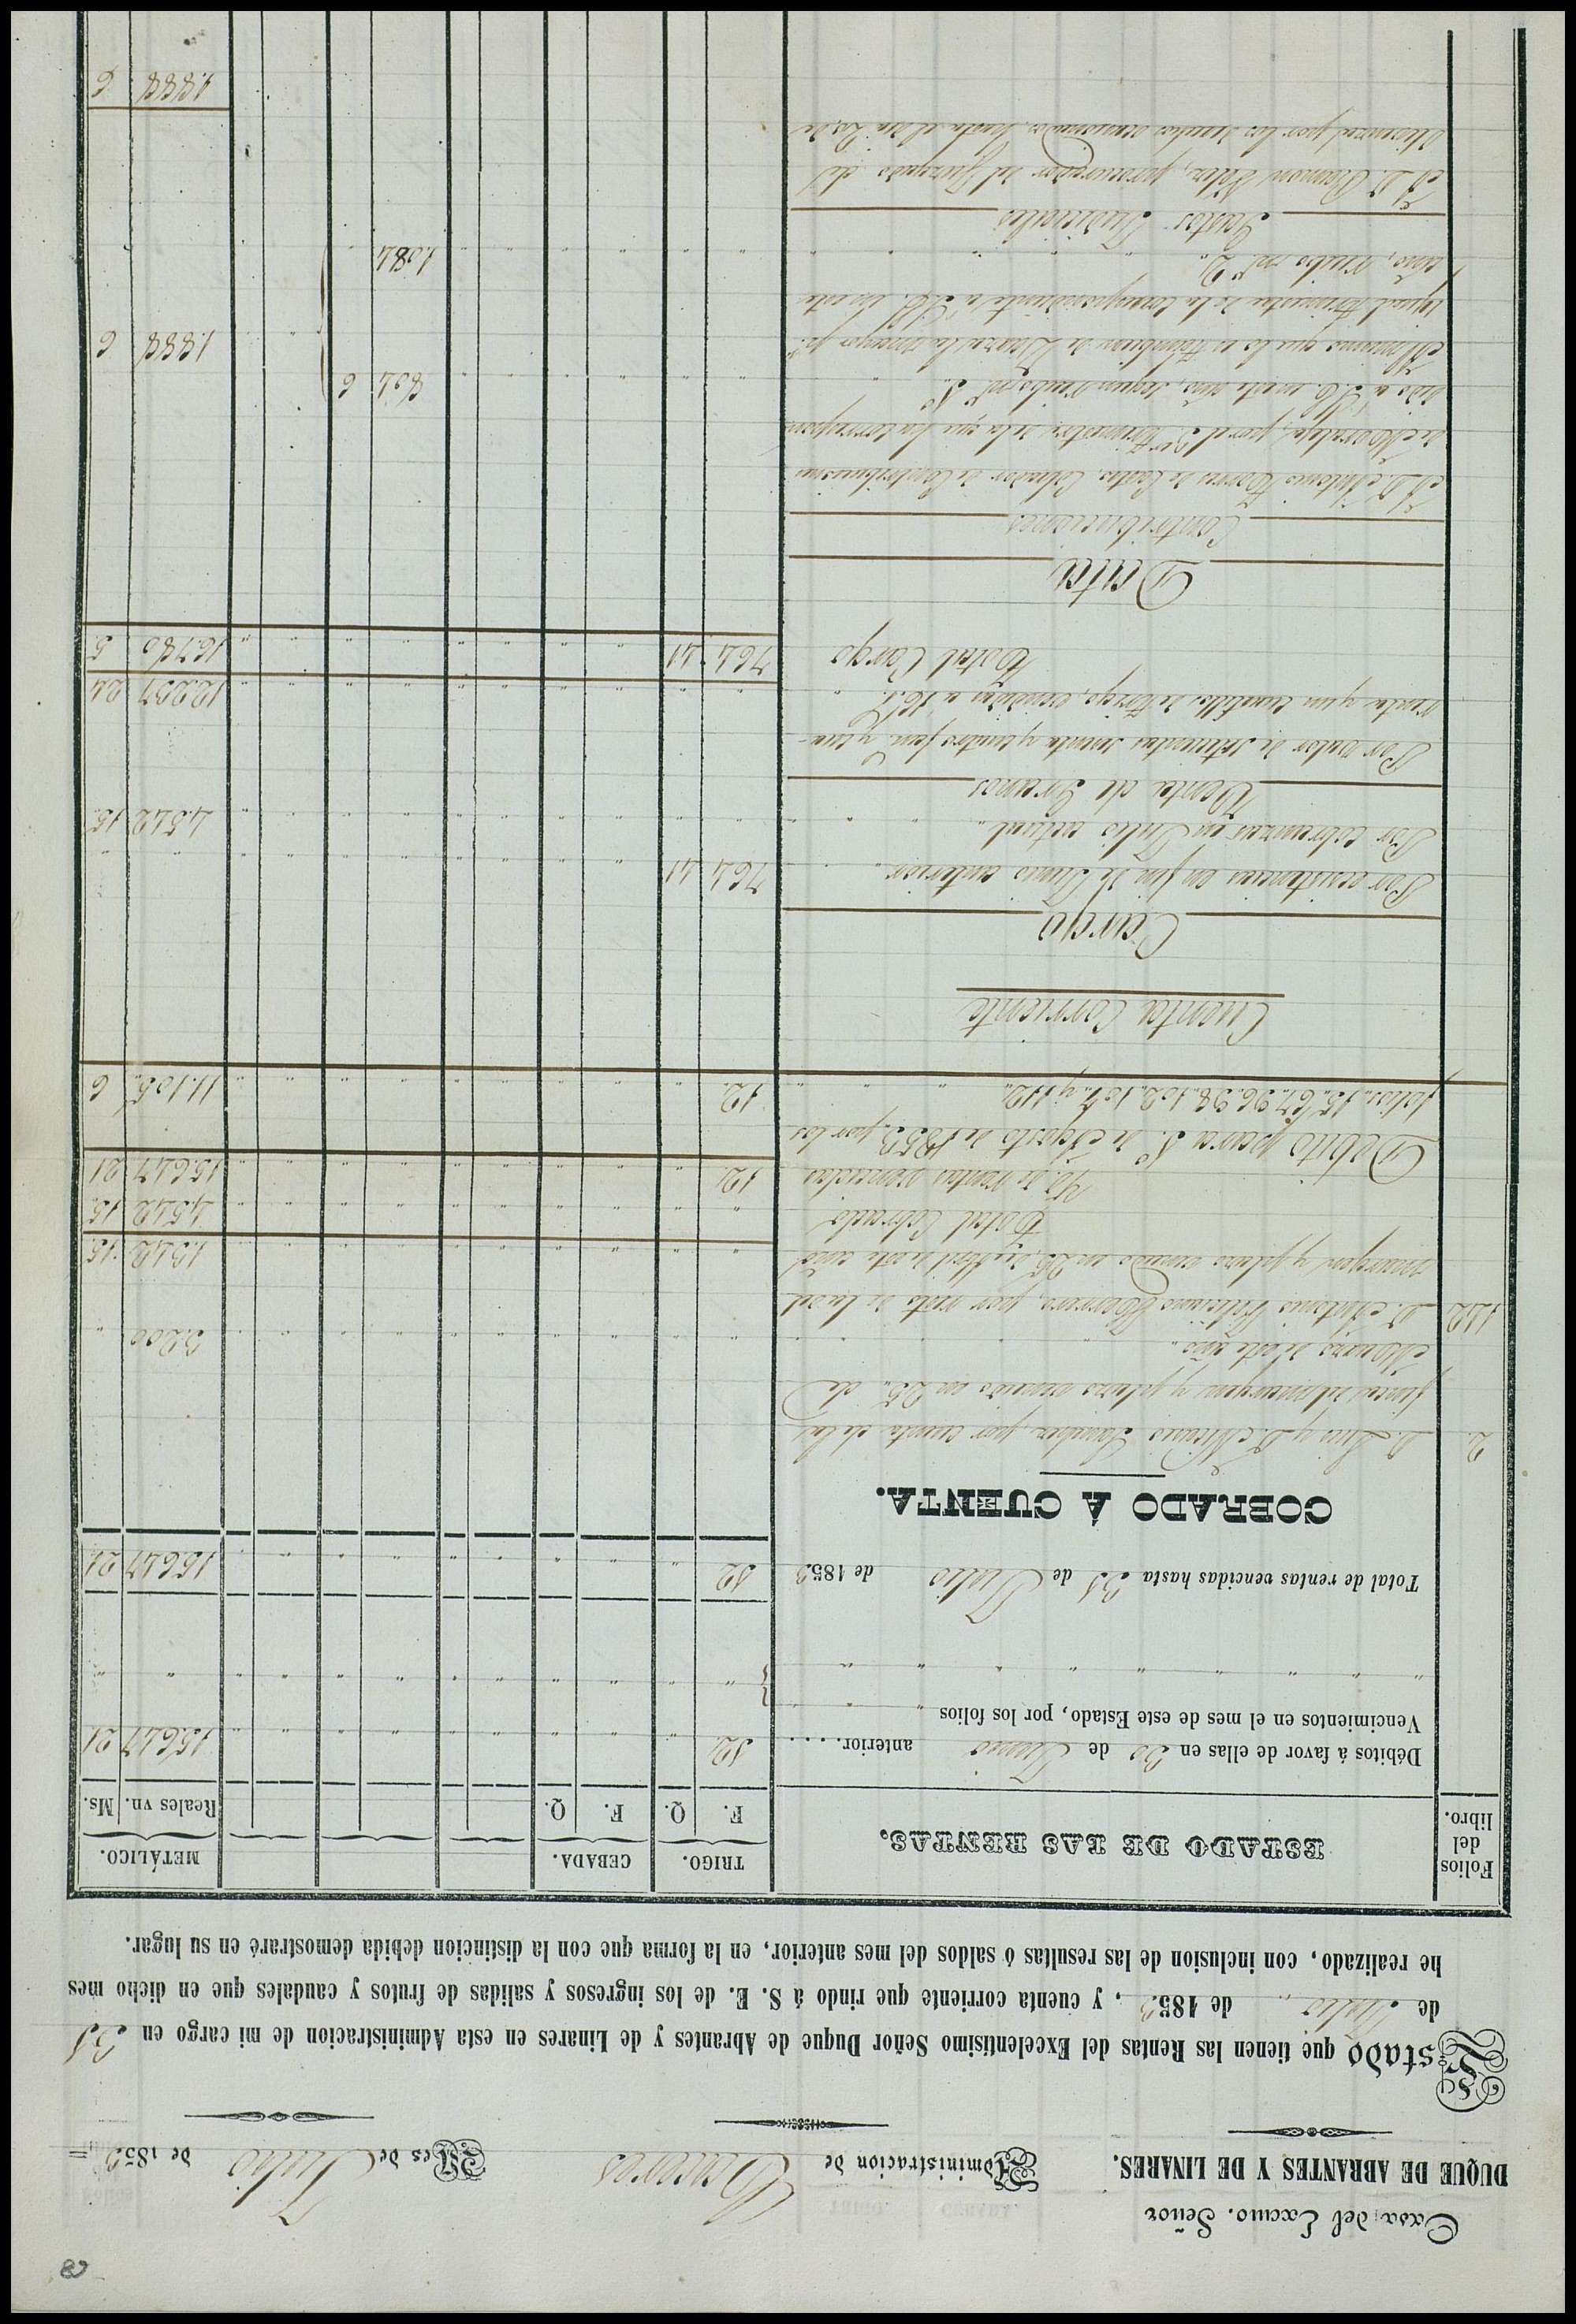 8
Casa del Excmo. Señor
DUQUE DE ABRANTES Y DE LINARES.
Administracion de Cáceres
Mes de Julio de 1853
Estado que tienen las Rentas del Excelentísimo Señor Duque de Abrantes y de Linares en esta Administracion de mi cargo en 31
de Julio de 1853, y cuenta corriente que rindo á S. E. de los ingresos y salidas de frutos y caudales que en dicho mes
he realizado, con inclusion de las resultas ó saldos del mes anterior, en la forma que con la distincion debida demostraré en su lugar.
Folios del libro.
ESTADO DE LAS RENTAS.
TRIGO. CEBADA. METÁLICO.
F. Q. F. Q. Reales vn. Ms.
Débitos á favor de ellas en 30 de Junio anterior. . . . 12 " " " " " " " " " 15.647 21
Vencimientos en el mes de este Estado, por los folios " " "
" " " " " " " " " " " " " " " " "
Total de rentas vencidas hasta 31 de Julio de 1853 12 " " " " " " " " " 15.647 21
COBRADO Á CUENTA.
2. D. Luis y D. Nicasio Sanchez, por cuenta de la
finca del margen y plazo vencido en 25 de
Marzo de este año " " " " " 3.200 "
112. D. Antonio Feliciano Herrero, por resto de la del
margen y plazo vencido en 25 de Abril de este año 1.342 15.
Total Cobrado " " " " 4.542 15.
Yd. de rentas vencidas 12. " " " " 15.647 21
Débito para 1.º de Agosto de 1853, por los
folios 15. 67. 96. 98. 102. 107. y 112. 12. " " " " 11.105 6
Cuenta Corriente
Cargo
Por existencias en fin de Junio anterior 764 41 " " " "
Por cobranzas en Julio actual " " " " 4.542 15.
Venta de Granos
Por valor de setecientas sesenta y cuatro fan.s y cua-
renta y un cuartillos de trigo, vendidas a 16 r.s " " " 12.237 24
Total Cargo 764 41 " " " " 16.780 5
Data
Contribuciones
A D. Antonio Torres de Castro, Cobrador de Contribuciones
de Moraleja, por el 2.º trimestre, de la que ha correspon-
dido a S.E. en este año, segun recibo n.º 1.º " " 804 6
Al mismo que lo es tambien de la encargo p.r
igual trimestre de la correspondiente a S.E. en este
año, recibo n.º 2. " " 1.084 "
1.888 6
Gastos Judiciales
A D. Ramon Vela, procurador del Juzgado de
por los devengados, hasta el dia 20 de
1.888 6